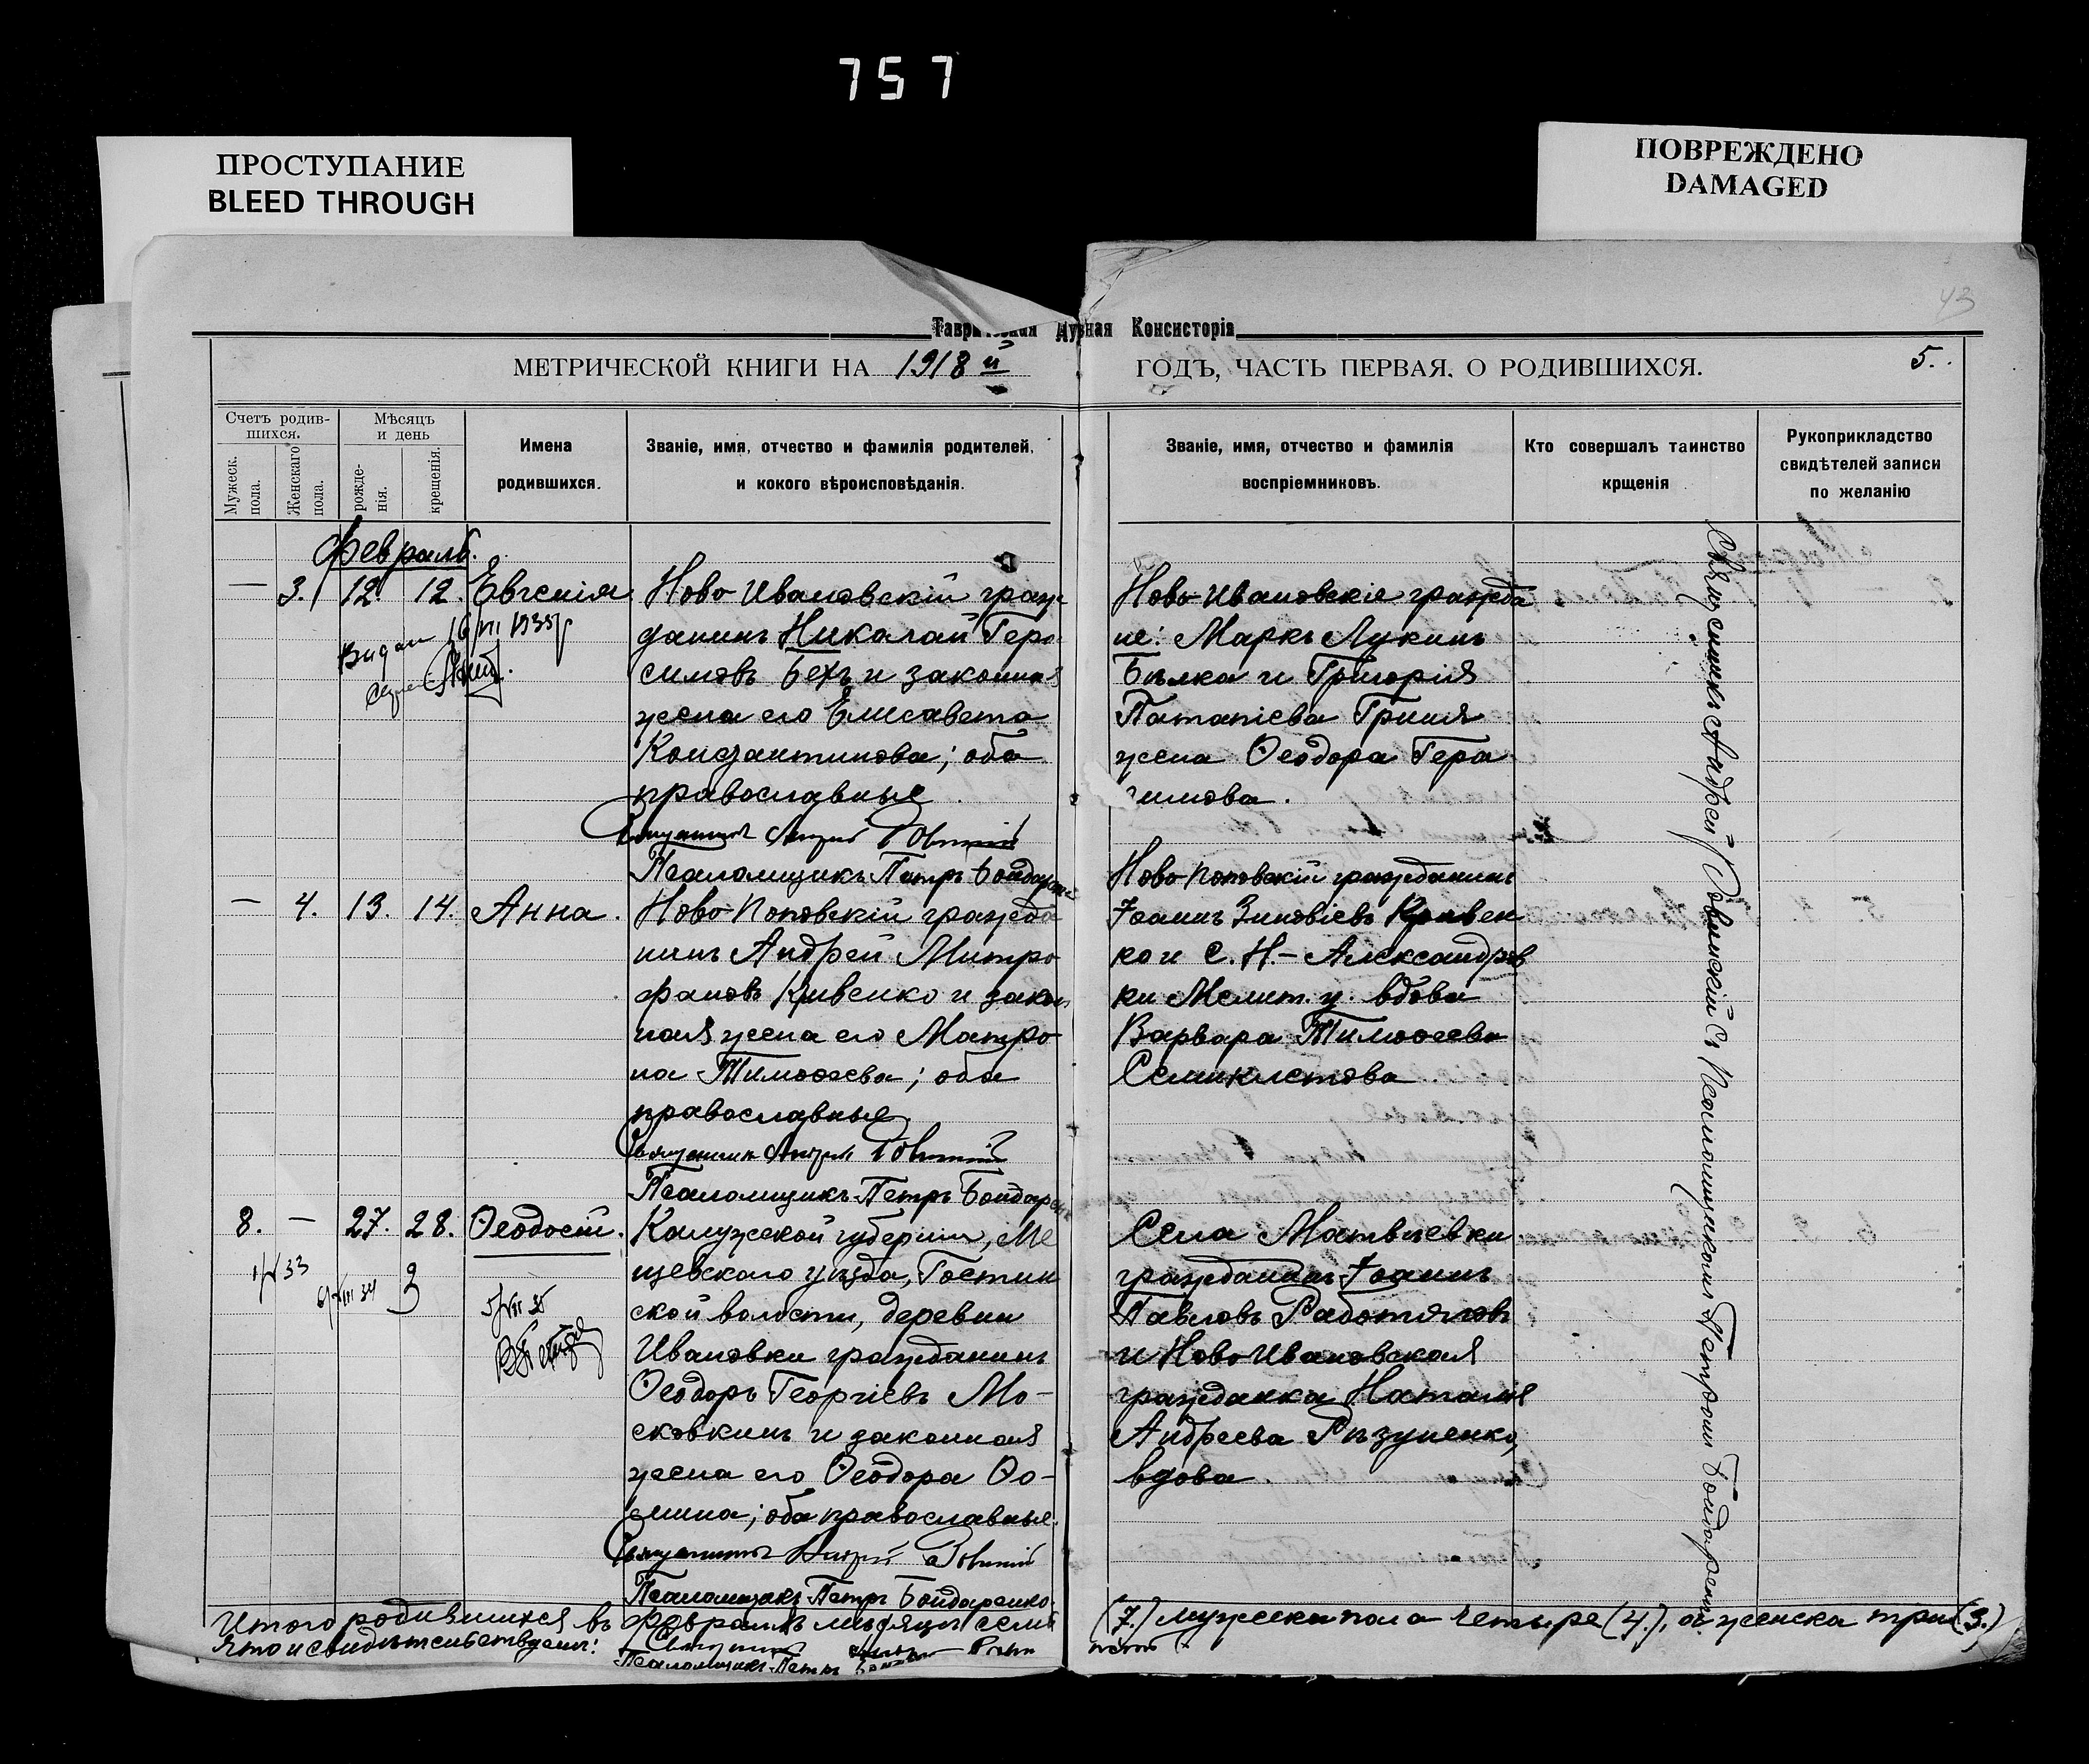 757
ПРОСТУПАНИЕ
BLEED THROUGH
ПОВРЕЖДЕНО
DAMAGED
43
Консисторія
МЕТРИЧЕСКОЙ КНИГИ НА 1918 й
ГОДЪ, ЧАСТЬ ПЕРВАЯ, О РОДИВШИХСЯ.
5.
Счетъ родив-
шихся.
Мужеск.
пола.
Женскаго
пола.
Мѣсяцъ
и день
рожде-
нія.
крещенія.
Имена
родившихся.
Званіе, имя, отчество и фамилія родителей,
и кокого вѣроисповѣданія.
Званіе, имя, отчество и фамилія
воспріемниковъ.
Кто совершалъ таинство
крщенія
Рукоприкладство
свидѣтелей записи
по желанію
Февраль.
— 3. 12. 12. Евгенія
Ново Ивановскій граж-
данинъ Николай Гера
симовъ Бехъ и законна
жена его Елисавета
Константинова; оба
православные
Священникъ Андрей Ровинскій
Псаломщикъ Петръ Бондаренко
Ново-Ивановскіе гражда
не: Маркъ Лукинъ
Бѣлка и Григорія
Патапіева Гриня
жена Ѳеодора Гера
симова.
— 4. 13. 14. Анна.
Ново Поповскій гражда
нинъ Андрей Митро
фановъ Кривенко и закон
ная жена его Матро
на Тимоѳеева; оба
православные
Священникъ Андрей Ровинскій
Псаломщикъ Петръ Бондарен
Ново Поповскій гражданинъ
Іоаннъ Зиновіевъ Кривен
ко и С. Н.- Александров
ки Мелит. у. вдова
Варвара Тимоѳеева
Семиклетова
8. — 27. 28. Ѳеодосій.
Калужской губерніи, Ме
щевскаго уѣзда, Гостин
ской волости, деревни
Ивановки гражданинъ
Ѳеодоръ Георгіевъ Мо-
сковкинъ и законная
жена его Ѳеодора Ѳо-
мина; оба православные.
Священникъ Андрей Ровинскій
Псаломщикъ Петръ Бондаренко.
Села Матвѣевки
гражданинъ Іоаннъ
Павловъ Работяговъ
и Ново Ивановская
гражданка Наталія
Андреева Рѣзуненко,
вдова
Священникъ Андрей Ровинскій съ Псаломщикомъ Петромъ Бондаренко
Итого родившихся въ Февралѣ мѣсяцѣ семь
(7.) мужеска пола четыре (4.), а женска три (3.)
Что и свидѣтельствуемъ:
Псаломщикъ Петръ